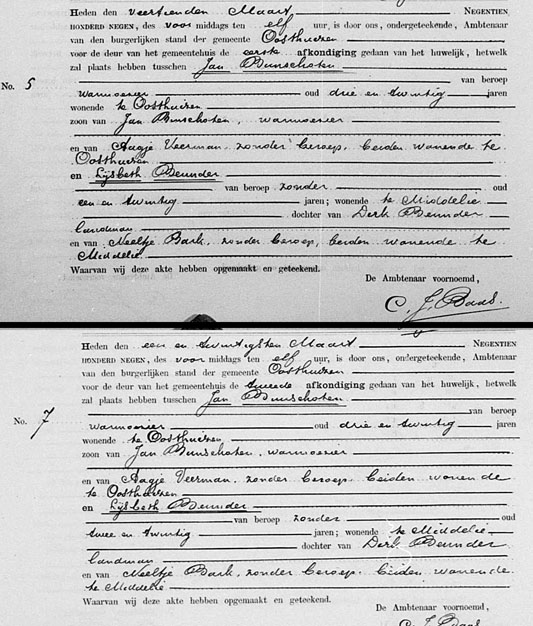 Heden den veertienden Maart NEGENTIEN
HONDERD NEGEN, des voor middags ten elf uur, is door ons, ondergeteekende, Ambtenaar
van den burgerlijken stand der gemeente Oosthuizen
voor de deur van het gemeentehuis de eerste afkondiging gedaan van het huwelijk, hetwelk
zal plaats hebben tusschen Jan Bunschoten
van beroep
No. 5
warmoezier oud drie en twintig jaren
wonende te Oosthuizen
zoon van Jan Bunschoten, warmoezier
en van Aagje Veerman, zonder beroep, beiden wonende te
Oosthuizen
en Lijsbeth Beunder
van beroep zonder oud
een en twintig jaren; wonende te Middelie
dochter van Derk Beunder
landman
en van Neeltje Bark, zonder beroep, beiden wonende te
Middelie
Waarvan wij deze akte hebben opgemaakt en geteekend.
De Ambtenaar voornoemd,
C. J. Baas.
Heden den een en twintigsten Maart NEGENTIEN
HONDERD NEGEN, des voor middags ten elf uur, is door ons, ondergeteekende, Ambtenaar
van den burgerlijken stand der gemeente Oosthuizen
voor de deur van het gemeentehuis de tweede afkondiging gedaan van het huwelijk, hetwelk
zal plaats hebben tusschen Jan Bunschoten
van beroep
No. 7
warmoezier oud drie en twintig jaren
wonende te Oosthuizen
zoon van Jan Bunschoten, warmoezier
en van Aagje Veerman, zonder beroep, beiden wonende
te Oosthuizen
en Lijsbeth Beunder
van beroep zonder oud
twee en twintig jaren; wonende te Middelie
dochter van Derk Beunder
landman
en van Neeltje Bark, zonder beroep, beiden wonende
te Middelie
Waarvan wij deze akte hebben opgemaakt en geteekend.
De Ambtenaar voornoemd,
C. J. Baas